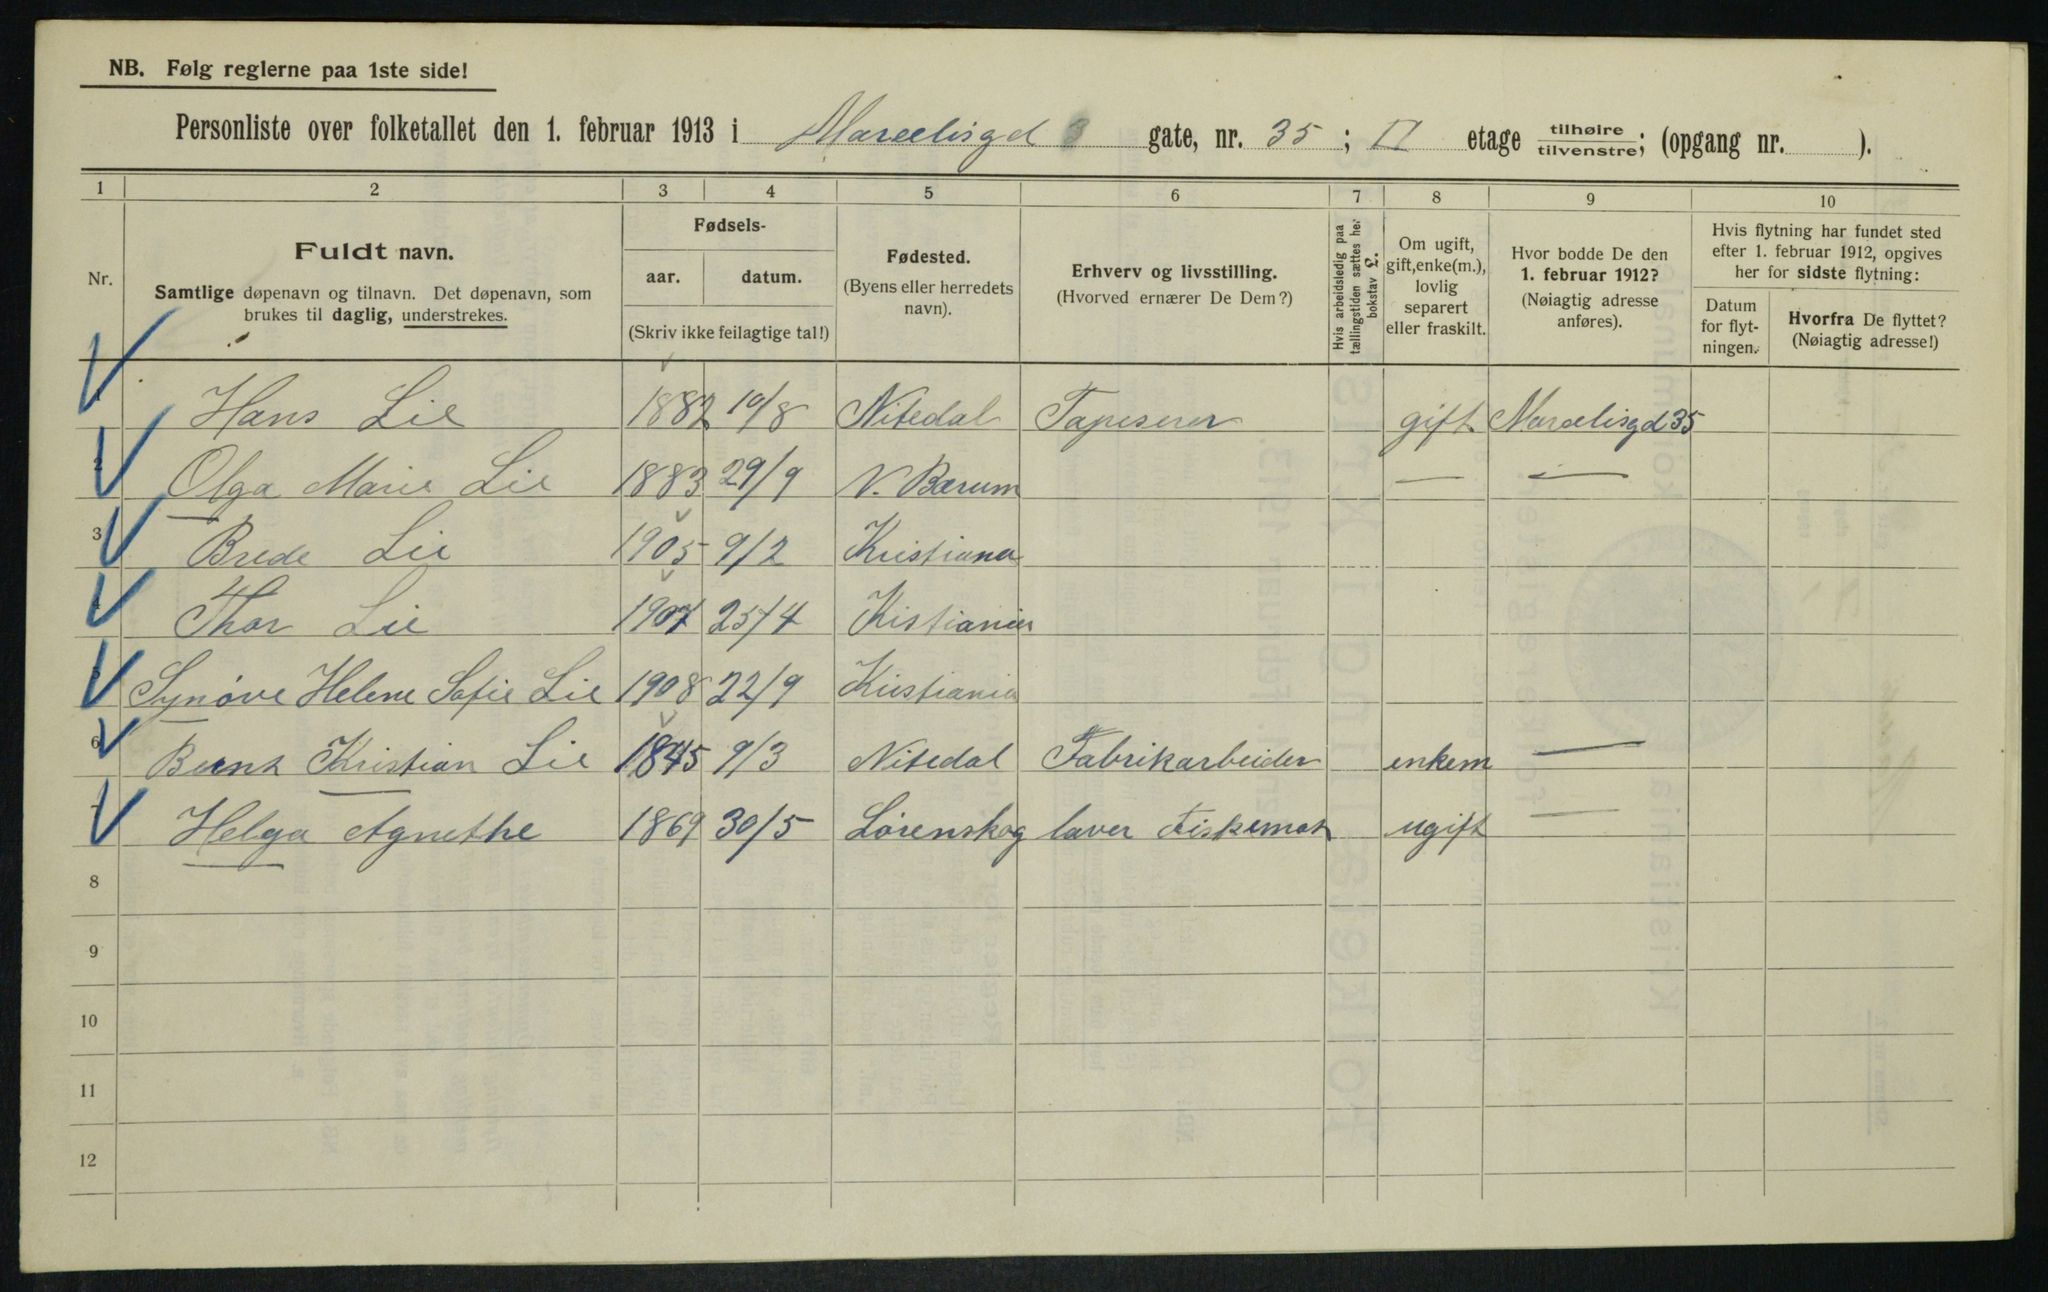 NB. Følg reglerne paa 1ste side!
Personliste over folketallet den 1. februar 1913 i Marcelisgd gate, nr. 35; II etage tilhøire / tilvenstre; (opgang nr. ).
1 2 3 4 5 6 7 8 9 10
Nr.
Fuldt navn.
Samtlige døpenavn og tilnavn. Det døpenavn, som
brukes til daglig, understrekes.
Fødsels-
aar. datum.
(Skriv ikke feilagtige tal!)
Fødested.
(Byens eller herredets
navn).
Erhverv og livsstilling.
(Hvorved ernærer De Dem?)
Hvis arbeidsledig paa
tællingstiden sættes her
bokstav L.
Om ugift,
gift, enke(m.),
lovlig
separert
eller fraskilt.
Hvor bodde De den
1. februar 1912?
(Nøiagtig adresse
anføres).
Hvis flytning har fundet sted
efter 1. februar 1912, opgives
her for sidste flytning:
Datum
for flyt-
ningen.
Hvorfra De flyttet?
(Nøiagtig adresse!)
1 Hans Lie 1882 19/8 Nitedal Tapeserer gift Marcelisgd 35
2 Olga Marie Lie 1883 29/9 V. Bærum — —
3 Brede Lie 1905 9/2 Kristiana
4 Thor Lie 1907 25/4 Kistiania
5 Synøve Helene Sofie Lie 1908 22/9 Kristiania
6 Bernt Kristian Lie 1845 9/3 Nitedal Fabrikarbeider enkem —
7 Helga Agnethe 1869 30/5 Lørenskog laver Fiskemat ugift —
8
9
10
11
12